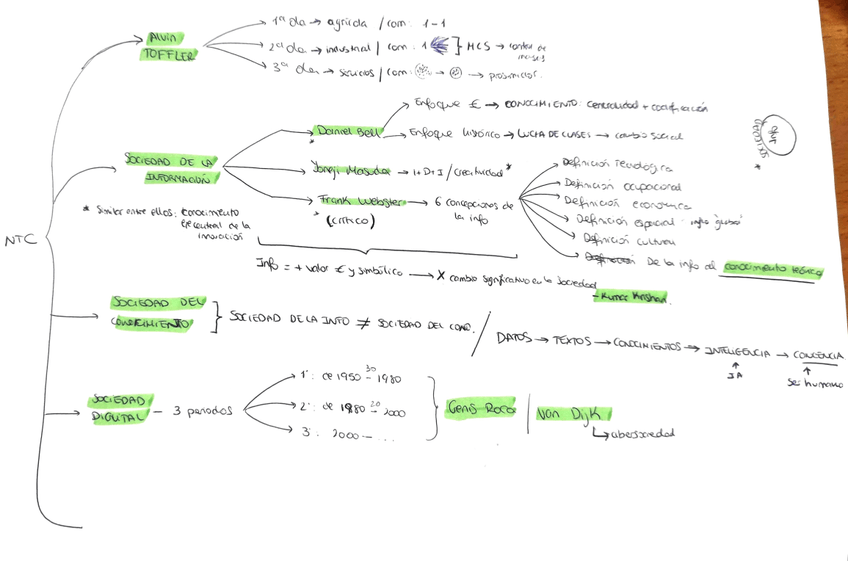 NTC
Alvin
TOFFLER
1ª ola → agrícola / com: 1-1
2ª ola → industrial / com: 1 } MCS → control de
3ª ola → servicios / com: → → prosumidores.
SOCIEDAD DE LA
INFORMACIÓN
Daniel Bell
Enfoque € → CONOCIMIENTO: centralidad + codificación
Enfoque histórico → LUCHA DE CLASES → cambio social
Yonji Masuda → I+D+I / creatividad *
Frank Webster → 6 concepciones de
la info
* (crítico)
Definición tecnológica
Definición ocupacional
Definición económica
Definición espacial: info "global"
Definición cultural
De la info al conocimiento teórico
* Similar entre ellos: conocimiento
innovación
Info = + valor € y simbólico → X cambio significativo en la sociedad
- Kumar Krishan.
SOCIEDAD DEL
CONOCIMIENTO
SOCIEDAD DE LA INFO ≠ SOCIEDAD DEL CONO. /
DATOS → TEXTOS → CONOCIMIENTOS → INTELIGENCIA → CONCIENCIA
IA
ser humano
SOCIEDAD
DIGITAL - 3 periodos
1º: de 1950 - 1980
30
2º: de 1980 - 2000
20
3º: 2000 - ...
Genís Roca
Van Dijk
cibersociedad
info